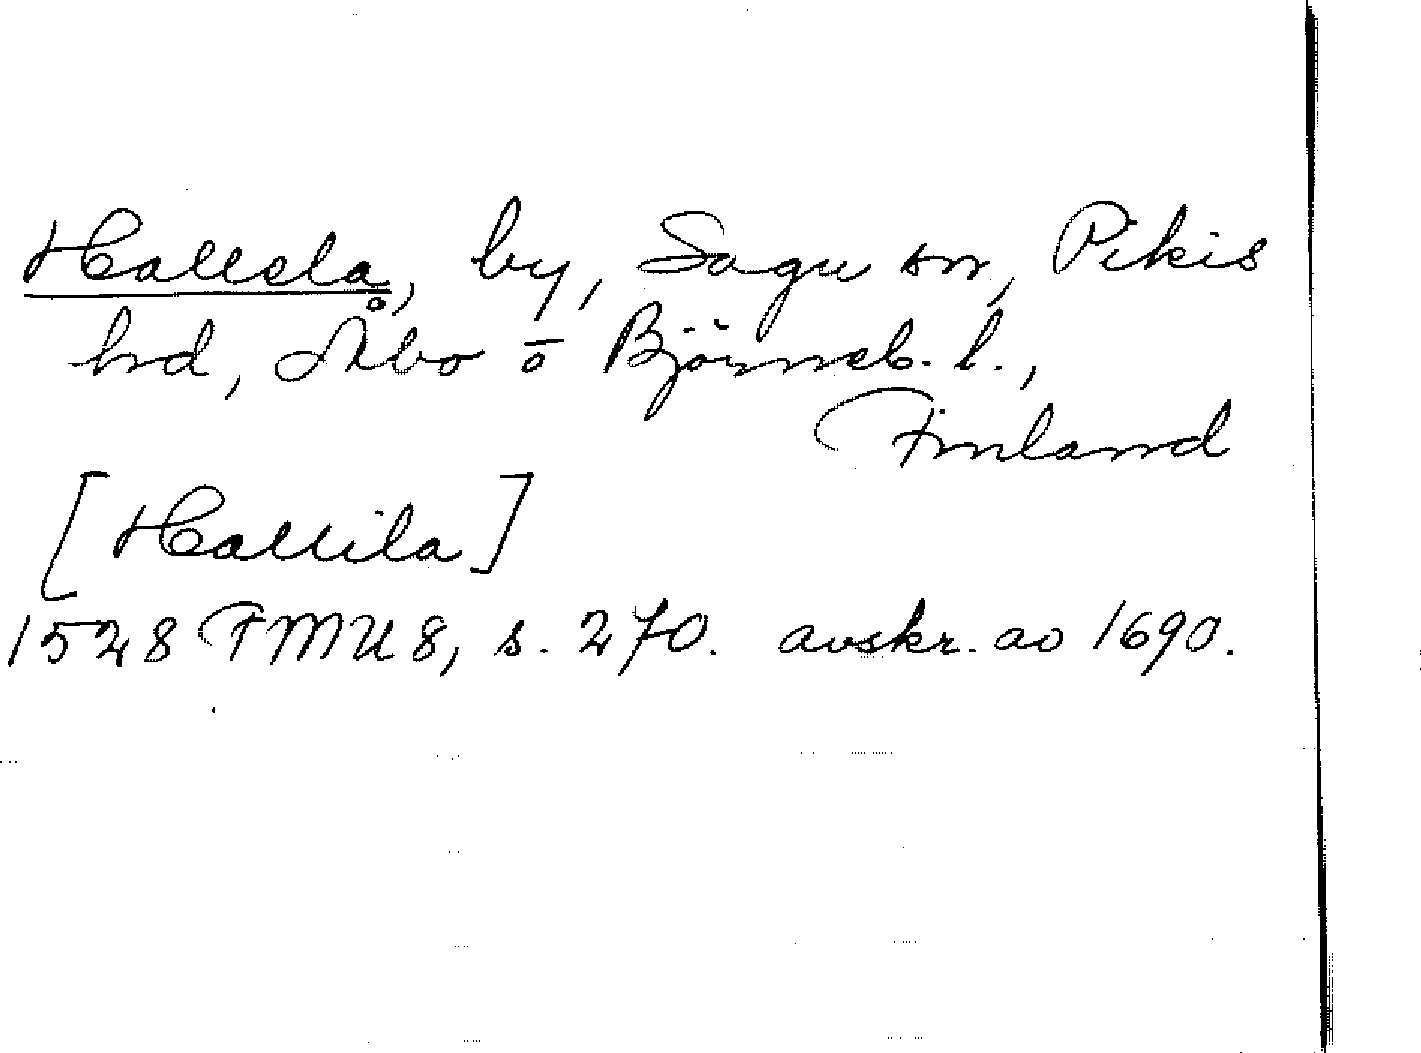 Hallela, by, Sagu sn, Pikis
hd, Åbo o Björneb. l.,
Finland
[Hallila]
1528 FMU 8, s. 270. avskr. ao 1690.